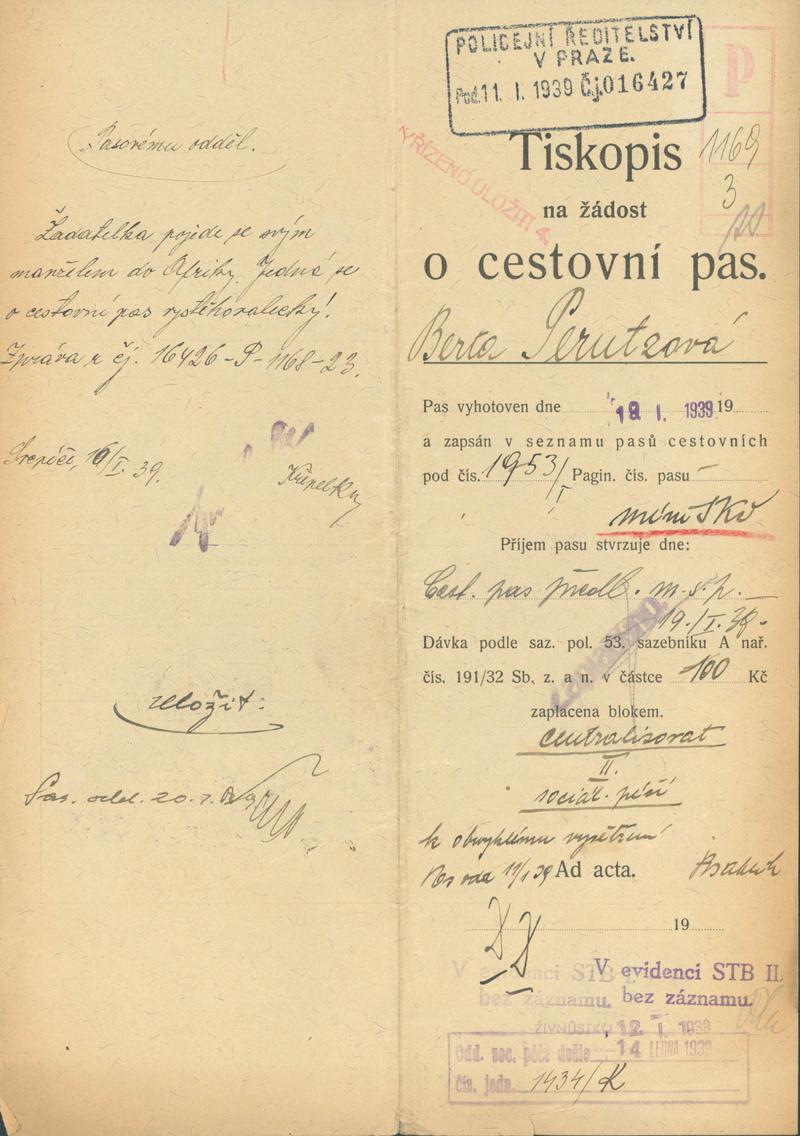 Pasovému odděl.
Žadatelka pojede se svým
manželem do Afriky. Jedná se
o cestovní pas vystěhovalecký!
Zpráva v čj. 16426-P-1168-23.
16/I. 39.
uložit:
Pas. odd. 20.
POLICEJNÍ ŘEDITELSTVÍ
V PRAZE.
Pod. 11. I. 1939 Čj. 016427
P
1169
3
VYŘÍZENO ULOŽIT! 4.
Tiskopis
na žádost
o cestovní pas.
Berta Perutzová
Pas vyhotoven dne 19 I. 1939 19
a zapsán v seznamu pasů cestovních
pod čís. 1953/I Pagin. čís. pasu —
Příjem pasu stvrzuje dne:
Cest. pas předl. m. s. p. —
19./I. 39.
Dávka podle saz. pol. 53. sazebníku A nař.
čís. 191/32 Sb. z. a n. v částce 100 Kč
zaplacena blokem.
centralisovat
II.
sociál. péči
k obvyklému vyšetření
11/I 39 Ad acta.
19
V evidenci STB II.
bez záznamu.
V evidenci STB
bez záznamu.
12. I. 1939
Odd. soc. péče došlo 14 LEDNA 1939
čís. jedn. 1434/K